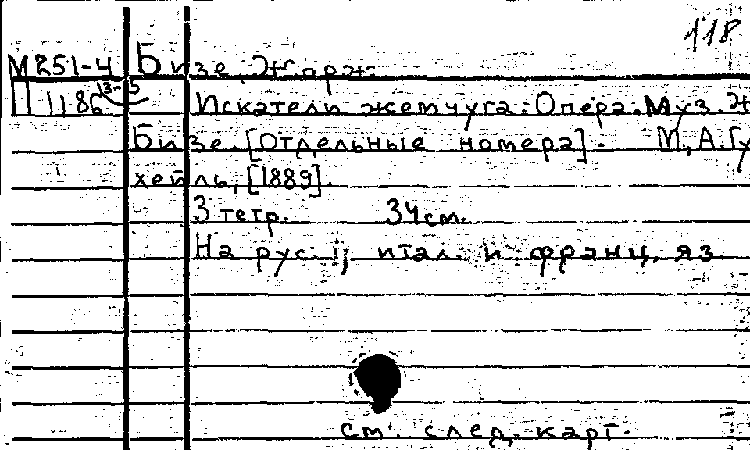 118
М251-4 Бизе, Жорж.
П 1186 13-5 Искатели жемчуга. Опера. Муз. Ж
Бизе. [Отдельные номера]. М, А. Гу
хейль, [1889].
3 тетр. 34 см.
На рус., итал. и франц. яз.
См. след. карт.